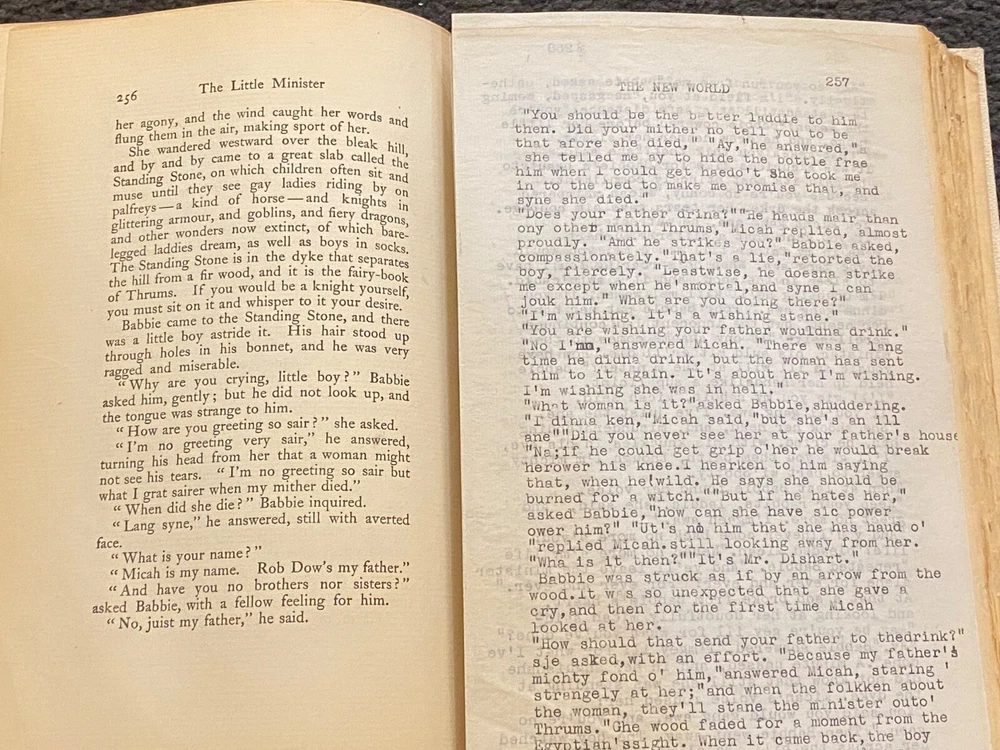 256
The Little Minister
her agony, and the wind caught her words and
flung them in the air, making sport of her.
She wandered westward over the bleak hill,
and by and by came to a great slab called the
Standing Stone, on which children often sit and
muse until they see gay ladies riding by on
palfreys—a kind of horse—and knights in
glittering armour, and goblins, and fiery dragons,
and other wonders now extinct, of which bare-
legged laddies dream, as well as boys in socks.
The Standing Stone is in the dyke that separates
the hill from a fir wood, and it is the fairy-book
of Thrums. If you would be a knight yourself,
you must sit on it and whisper to it your desire.
Babbie came to the Standing Stone, and there
was a little boy astride it. His hair stood up
through holes in his bonnet, and he was very
ragged and miserable.
“Why are you crying, little boy?” Babbie
asked him, gently; but he did not look up, and
the tongue was strange to him.
“How are you greeting so sair?” she asked.
“I'm no greeting very sair,” he answered,
turning his head from her that a woman might
not see his tears. “I'm no greeting so sair but
what I grat sairer when my mither died.”
“When did she die?” Babbie inquired.
“Lang syne,” he answered, still with averted
face.
“What is your name?”
“Micah is my name. Rob Dow's my father.”
“And have you no brothers nor sisters?”
asked Babbie, with a fellow feeling for him.
“No, juist my father,” he said.
THE NEW WORLD
257
"You should be the better laddie to him
then. Did your mither no tell you to be
that afore she died," "Ay,"he answered,"
she telled me ay to hide the bottle frae
him when I could get haedo't She took me
in to the bed to make me promise that, and
syne she died."
"Does your father drina?""He hauds mair than
ony other manin Thrums,"Micah replied, almost
proudly. "Amd he strikes you?" Babbie asked,
compassionately."That's a lie,"retorted the
boy, fiercely. "Leastwise, he doesna strike
me except when he'smortal,and syne I can
jouk him." What are you doing there?"
"I'm wishing. It's a wishing stane."
"You are wishing your father wouldna drink."
"No I'mn,"answered Micah. "There was a lang
time he didna drink, but the woman has sent
him to it again. It's about her I'm wishing.
I'm wishing she was in hell."
"What woman is it?"asked Babbie,shuddering.
"I dinna ken,"Micah said,"but she's an ill
ane""Did you never see her at your father's house
"Na;if he could get grip o'her he would break
herower his knee.I hearken to him saying
that, when he!wild. He says she should be
burned for a witch.""But if he hates her,"
asked Babbie,"how can she have sic power
ower him?" "Ut's no him that she has haud o'
"replied Micah.still looking away from her.
"Wha is it then?""It's Mr. Dishart."
Babbie was struck as if by an arrow from the
wood.It was so unexpected that she gave a
cry,and then for the first time Micah
looked at her.
"How should that send your father to thedrink?"
sje asked,with an effort. "Because my father's
michty fond o' him,"answered Micah, staring '
strangely at her;"and when the folkken about
the woman, they'll stane the minister outo'
Thrums. "She wood faded for a moment from the
Egyptian'ssight. When it came back,the boy